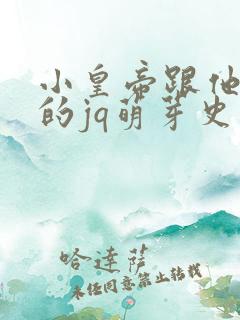 小皇帝跟他
的jq萌芽史
哈達薩
未经同意禁止转载